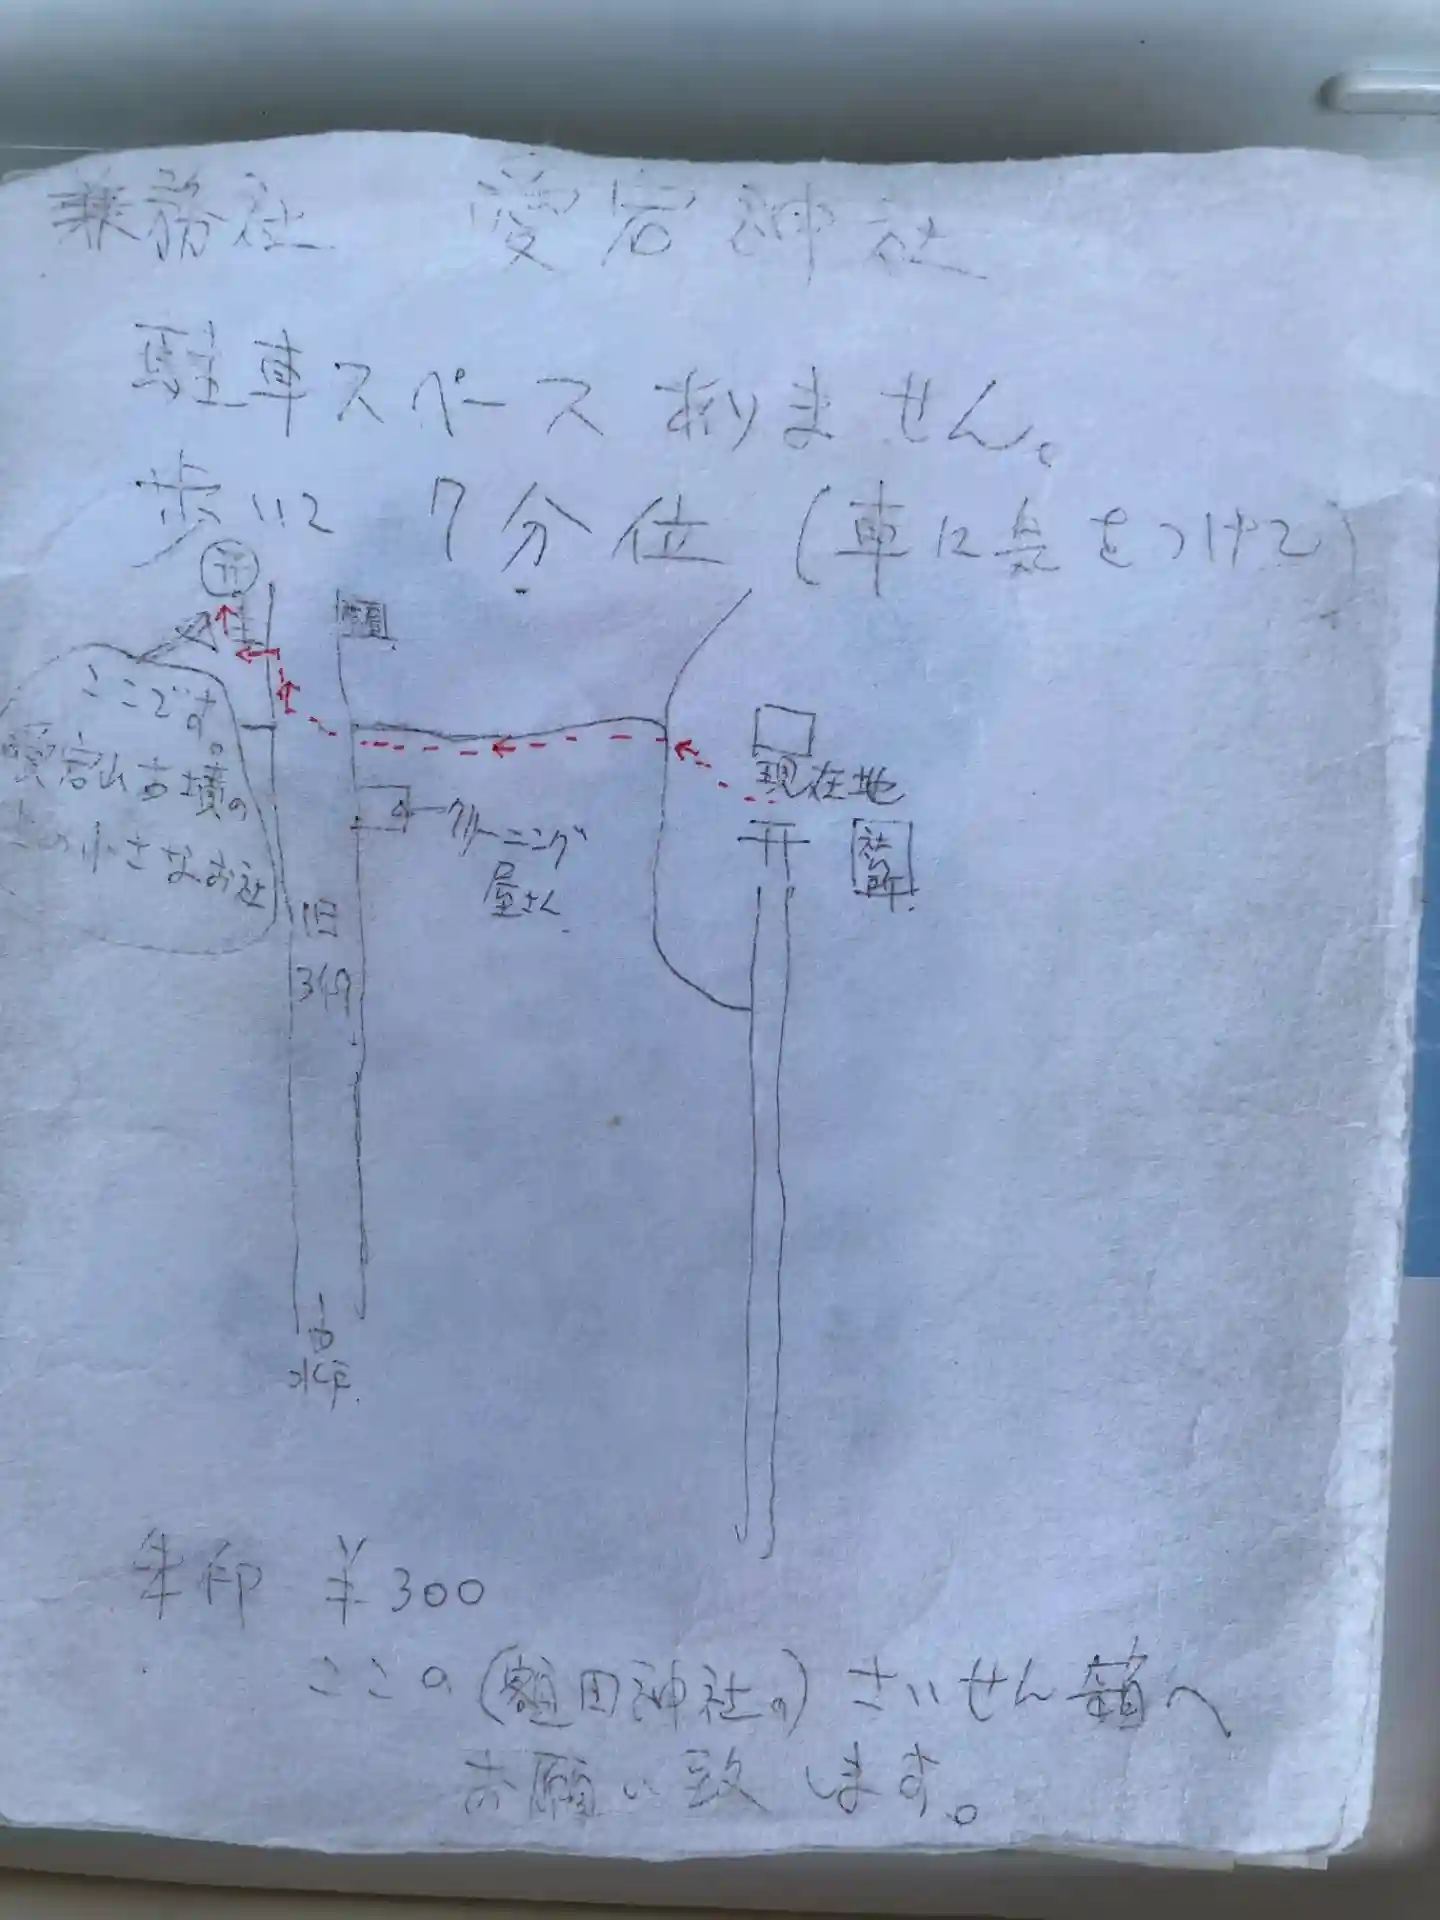 兼務社 愛宕神社
駐車スペースありません。
歩いて 7分位 (車に気をつけて)
ここです。
愛宕山古墳の
上の小さなお社
現在地
社務所
クリーニング
屋さん
旧
349
水戸
朱印 ¥300
ここの(額田神社の)さいせん箱へ
お願い致します。